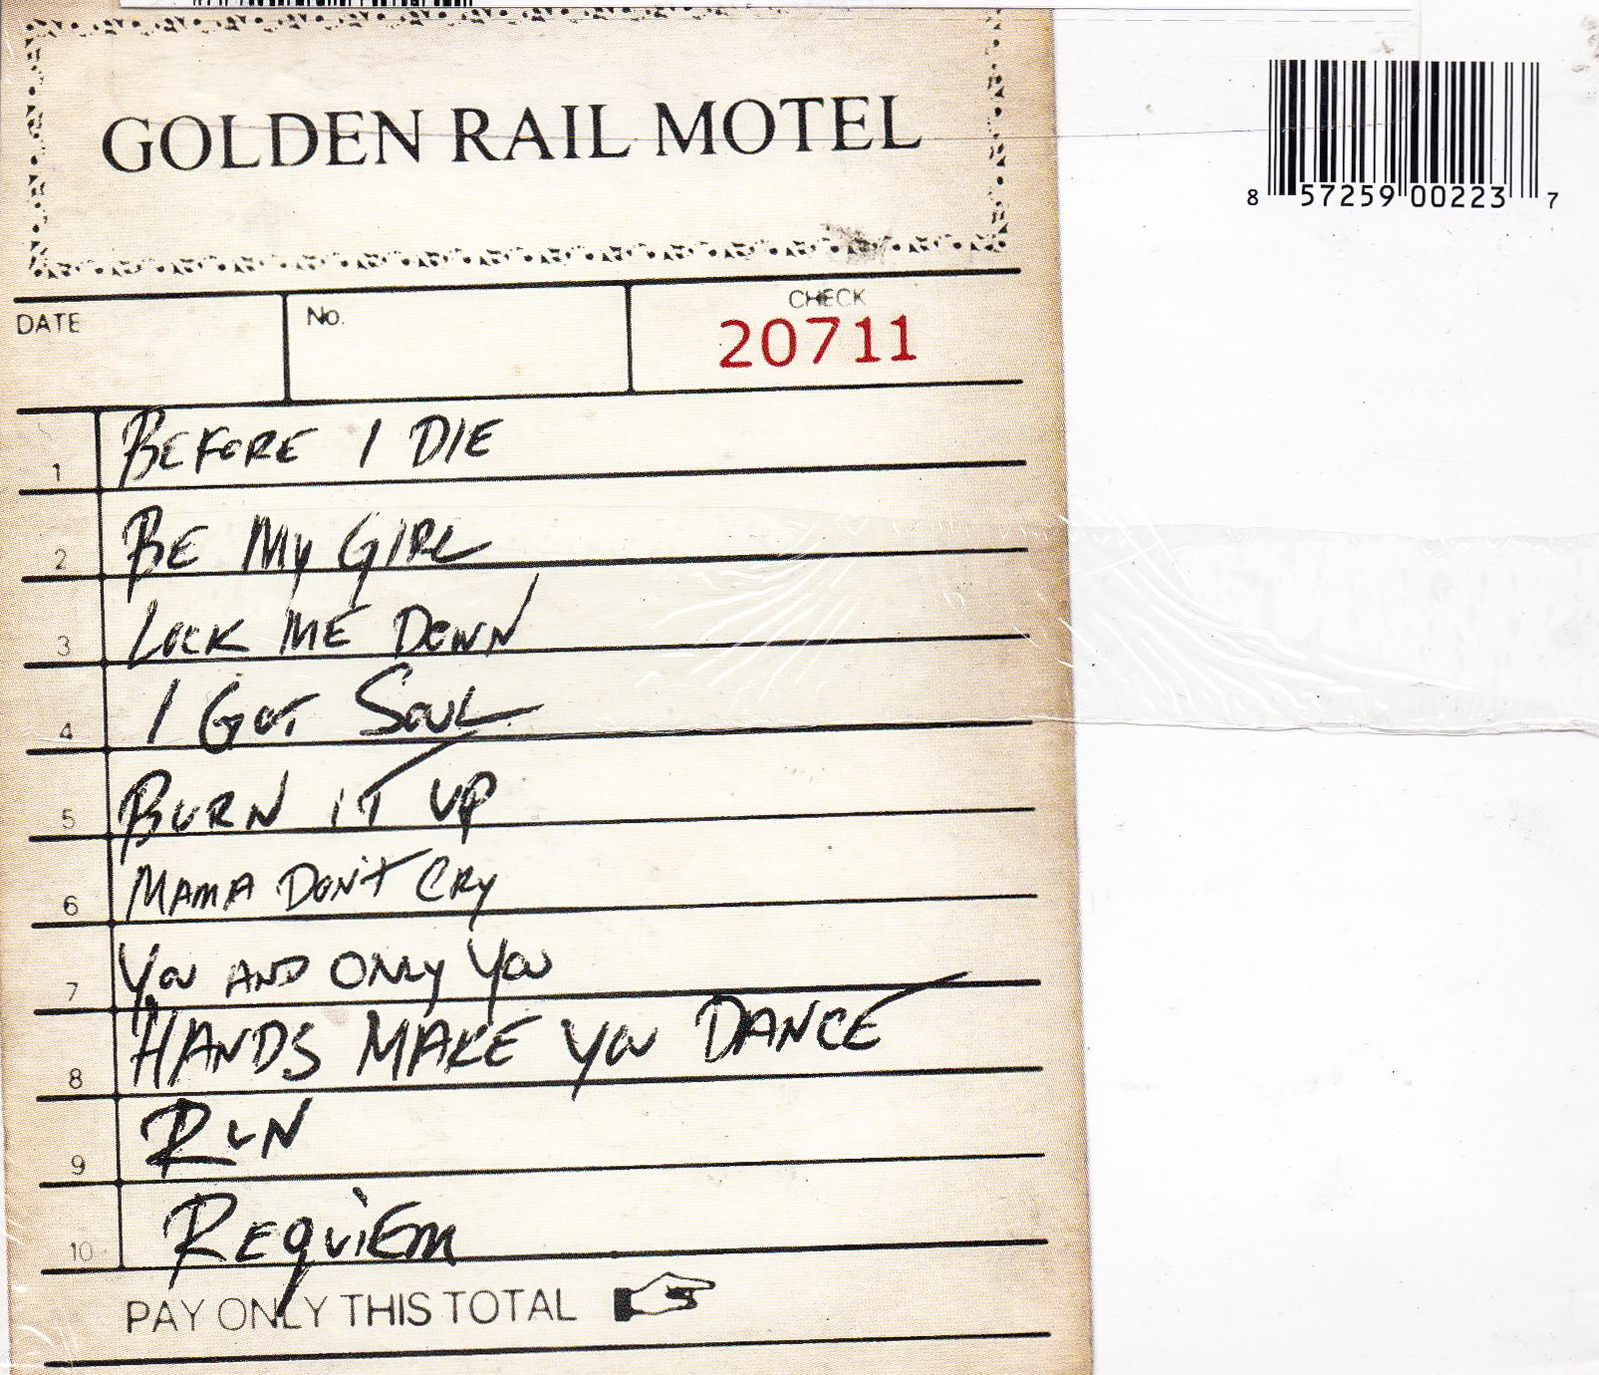 GOLDEN RAIL MOTEL
8 57259 00223 7
DATE
No.
CHECK
20711
1 BEFORE I DIE
2 BE MY GIRL
3 LOCK ME DOWN
4 I GOT SOUL
5 BURN IT UP
6 MAMA DON'T CRY
7 YOU AND ONLY YOU
8 HANDS MAKE YOU DANCE
9 RUN
10 REQUIEM
PAY ONLY THIS TOTAL